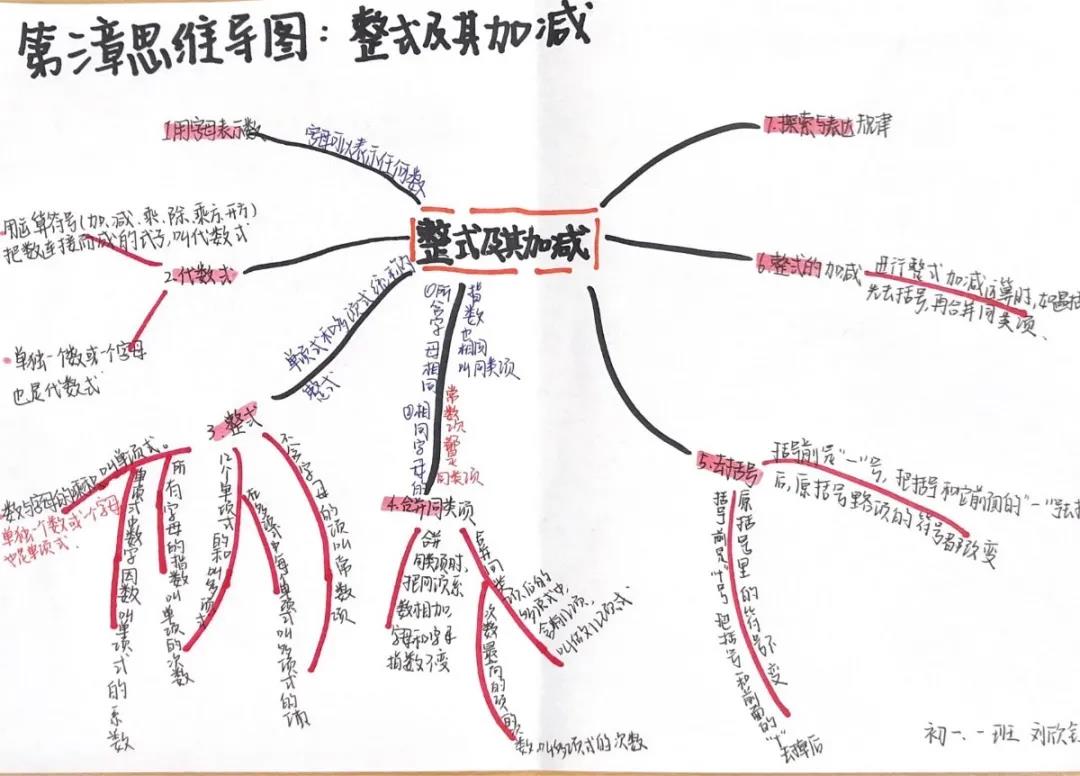 第三章思维导图：整式及其加减
整式及其加减
1.用字母表示数
字母可以表示任何数
2.代数式
用运算符号(加、减、乘、除、乘方、开方)
把数连接而成的式子,叫代数式
·单独一个数或一个字母
也是代数式
3.整式
单项式和多项式统称为
整式
数与字母的乘积叫单项式。
单独一个数或一个字母
也是单项式.
单项式中数字因数叫单项式的系数
所有字母的指数叫单项的次数
几个单项式的和叫多项式
在多项式中每个单项式叫多项式的项
不含字母的项叫常数项
4.合并同类项
①所含字母相同
②相同字母的
指数也相同
叫同类项
常数项都是
同类项
合并
同类项时,
把同类项系
数相加
字母和字母
指数不变
合并同类项后的
多项式中,
含有几项,
叫做几项式
次数最高的项的
次数叫多项式的次数
5.去括号
括号前是“一”号，把括号和它前面的“一”号去掉
后,原括号里各项的符号都改变
括号前是“十”号把括号和前面的“十”去掉后
原括号里的符号不变
6.整式的加减
进行整式加减运算时,如遇括
先去括号,再合并同类项、
7.探索与表达规律
初一、一班 刘欣